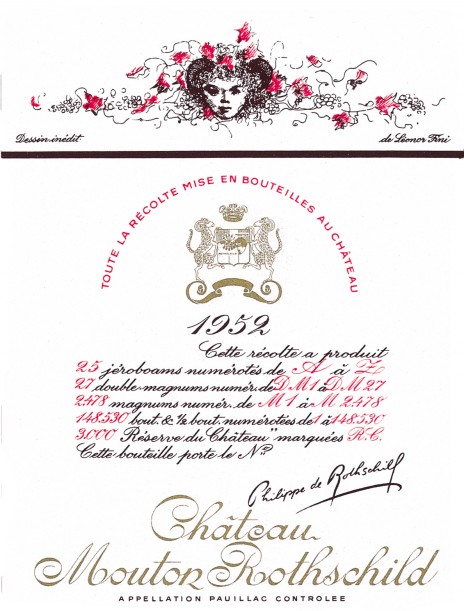 Dessin inédit
de Léonor Fini
TOUTE LA RÉCOLTE MISE EN BOUTEILLES AU CHÂTEAU
1952
Cette récolte a produit
25 jéroboams numérotés de A à Z
27 double-magnums numér. de D.M 1 à D.M 27
2.478 magnums numér. de M 1 à M 2.478
148.530 bout. & ½ bout. numérotées de 1 à 148.530
3.000 Réserve du Château" marquées R.C.
Cette bouteille porte le Nº
Philippe de Rothschild
Château
Mouton Rothschild
APPELLATION PAUILLAC CONTROLEE